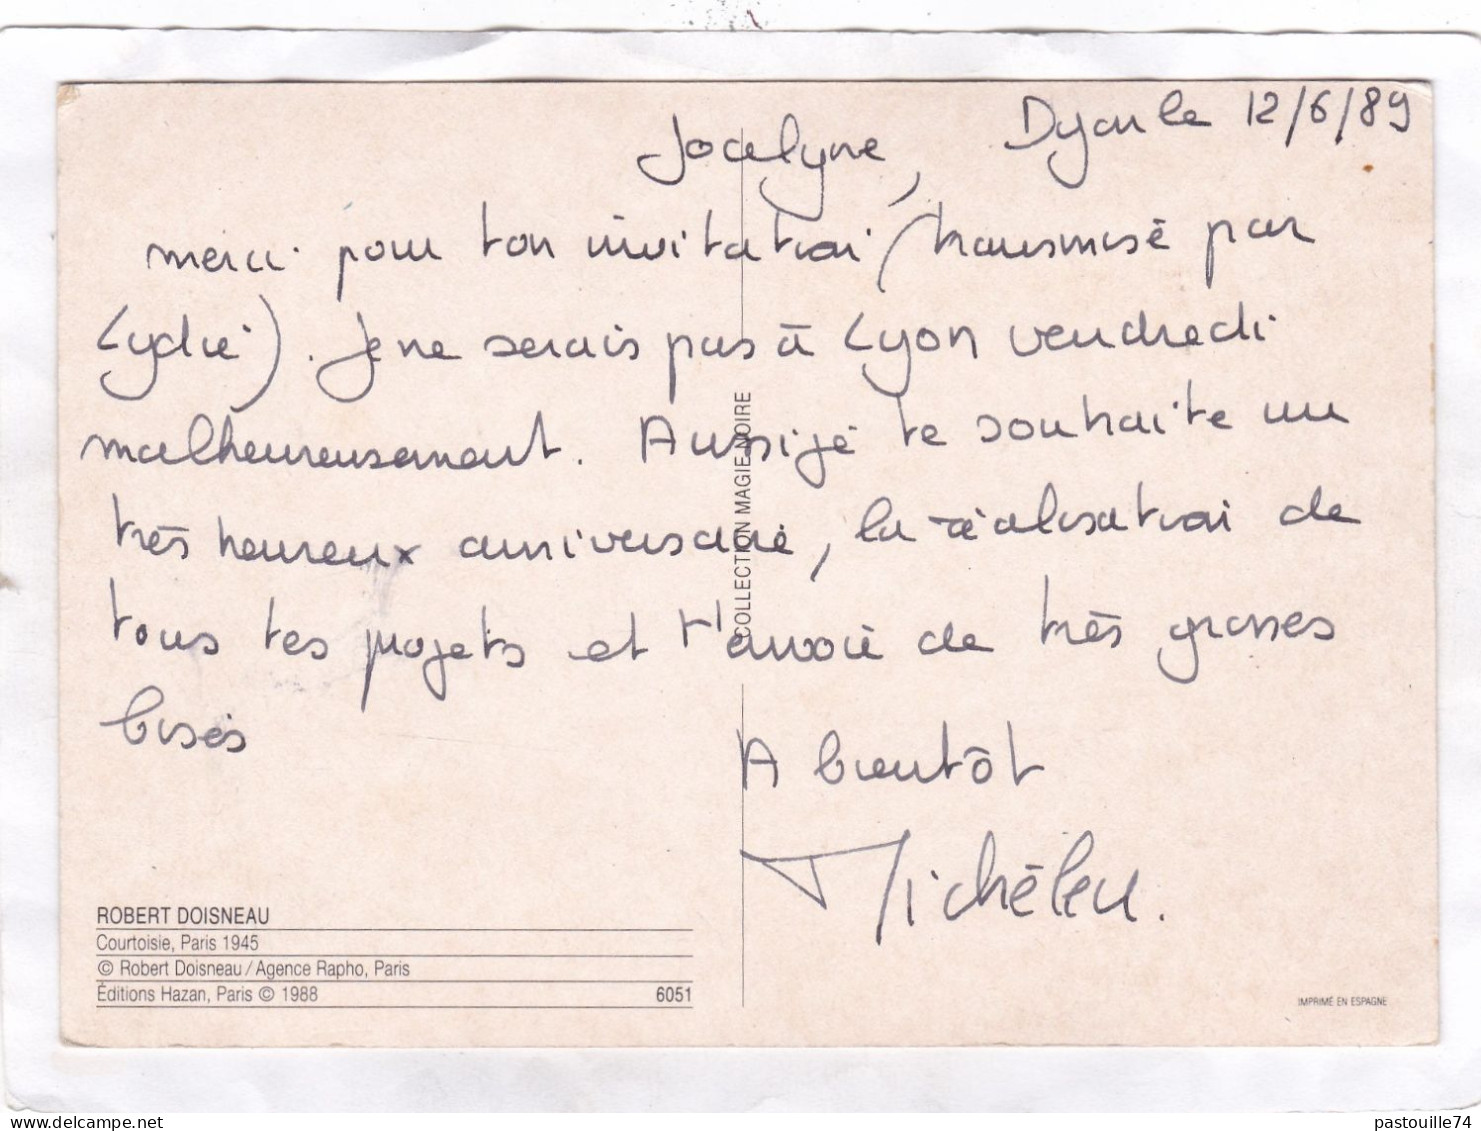 Jocelyne, Dijon le 12/6/89
merci pour ton invitation (transmise par
Lydie). Je ne serais pas à Lyon vendredi
malheureusement. Aussi je te souhaite un
très heureux anniversaire, la réalisation de
tous tes projets et t'envoie de très grosses
bises
A bientôt
COLLECTION MAGIE NOIRE
ROBERT DOISNEAU
Courtoisie, Paris 1945
© Robert Doisneau / Agence Rapho, Paris
Éditions Hazan, Paris © 1988 6051
IMPRIMÉ EN ESPAGNE
pastouille74